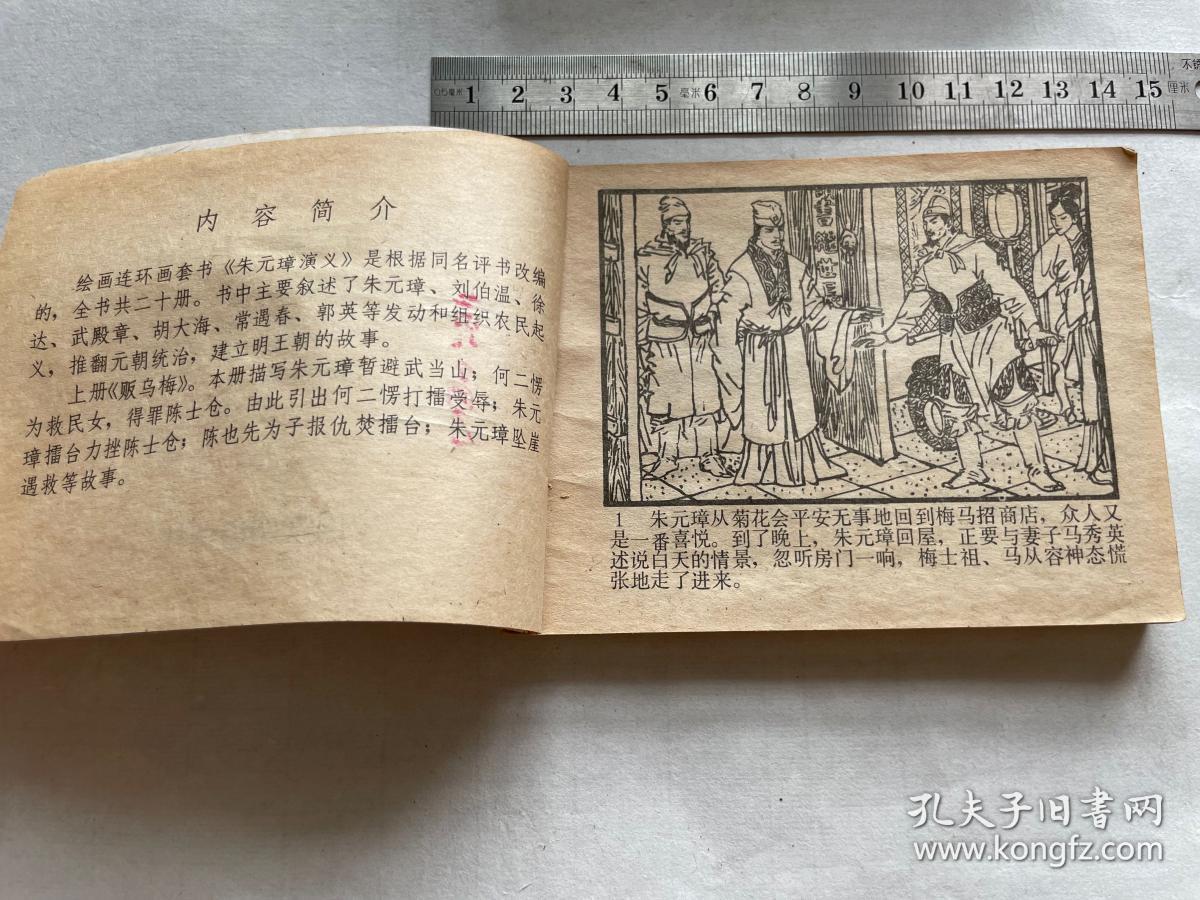 0.5毫米 1 2 3 4 5 毫米 6 7 8 9 10 11 12 13 14 15 厘米
内容简介
绘画连环画套书《朱元璋演义》是根据同名评书改编
的，全书共二十册。书中主要叙述了朱元璋、刘伯温、徐
达、武殿章、胡大海、常遇春、郭英等发动和组织农民起
义，推翻元朝统治，建立明王朝的故事。
上册《贩乌梅》。本册描写朱元璋暂避武当山；何二愣
为救民女，得罪陈士仓。由此引出何二愣打擂受辱；朱元
璋擂台力挫陈士仓；陈也先为子报仇焚擂台；朱元璋坠崖
遇救等故事。
1 朱元璋从菊花会平安无事地回到梅马招商店，众人又
是一番喜悦。到了晚上，朱元璋回屋，正要与妻子马秀英
述说白天的情景，忽听房门一响，梅士祖、马从容神态慌
张地走了进来。
孔夫子旧书网
www.kongfz.com